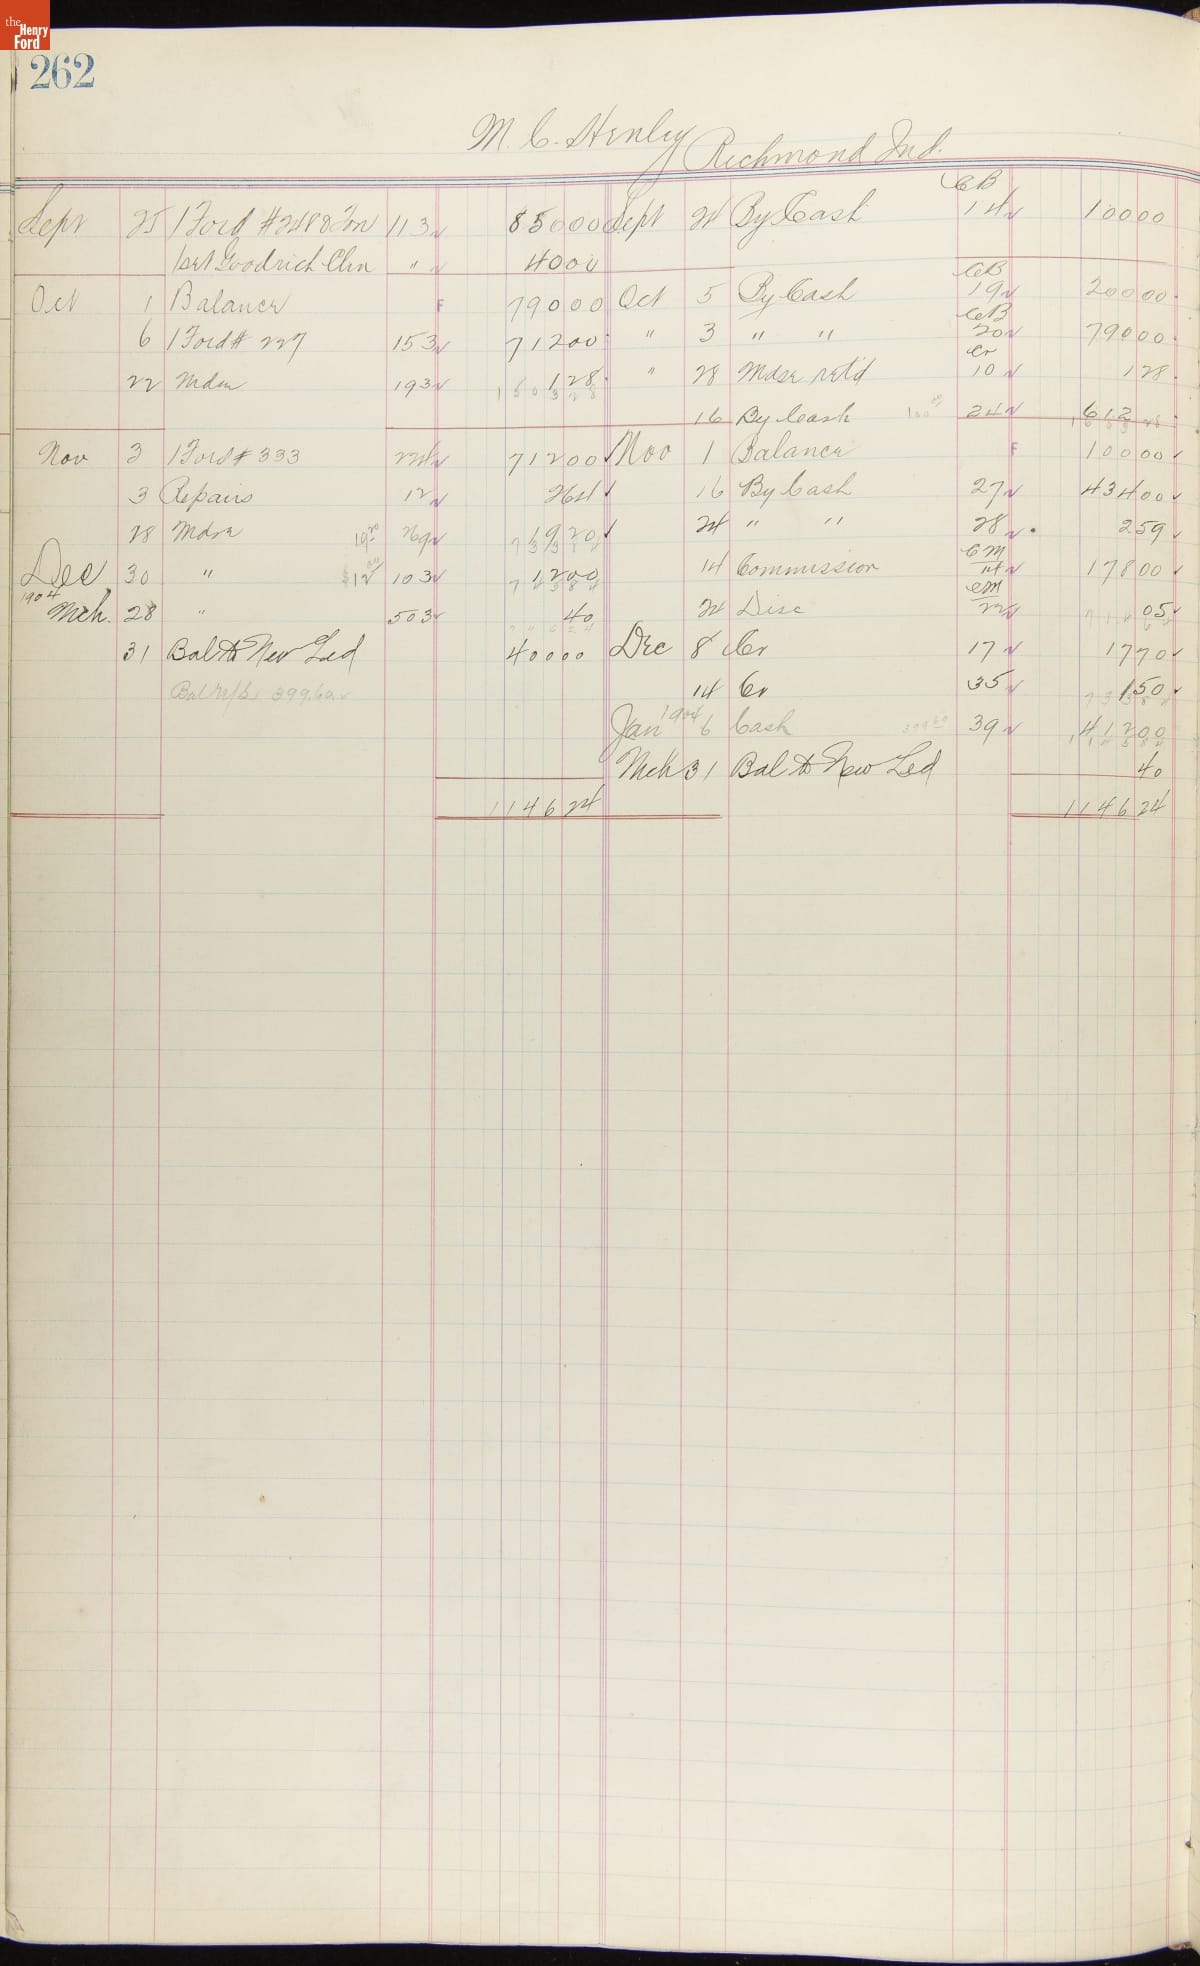 the
Henry
Ford
262
M. C. Henley Richmond Ind.
Sept 25 1 Ford # 248 & Ton 113 850 00 Sept 24 By Cash CB 14 100 00
1 set Goodrich Clin " 40 00
Oct 1 Balance F 790 00 Oct 5 By Cash CB 19 200 00
6 1 Ford # 227 153 712 00 " 3 " " CB 20 790 00
22 Mdse 193 1 28 " 28 Mdse ret'd Cr 10 1 28
1503 28
16 By Cash 100 00 24 612
1603 28
Nov 3 1 Ford # 333 224 712 00 Nov 1 Balance F 100 00
3 Repairs 12 2 64 16 By Cash 27 434 00
28 Mdse 19 20 269 19 20 24 " " 28 2 59
Dec 30 " $12 00 103 12 00 14 Commission CM 14 178 00
1904
Mch. 28 " 503 40 24 Disc CM 22 05
31 Bal to New Led 400 00 Dec 8 Cr 17 17 70
Bal 399.60 14 Cr 35 1 50
Jan 1904 6 Cash 399 60 39 412 00
Mch 31 Bal to New Led 40
1146 24 1146 24